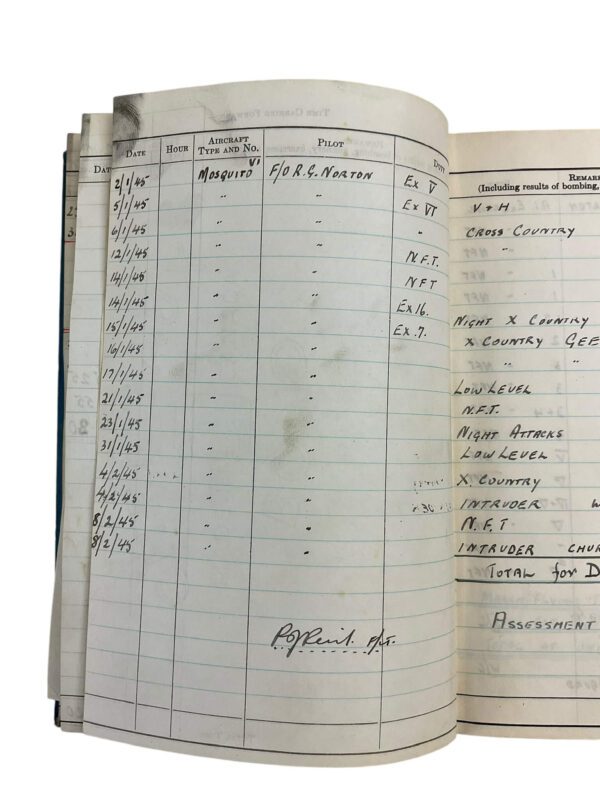 Date Hour Aircraft Type and No. Pilot Duty Remarks
(Including results of bombing,
2/1/45 Mosquito VI F/O R.G. Norton Ex V V + H
5/1/45 " " Ex VI Cross Country
6/1/45 " " " "
12/1/45 " " N.F.T.
14/1/45 " " NFT
14/1/45 " " Ex 16. Night X Country
15/1/45 " " Ex. 7. X Country GEE
16/1/45 " " " "
17/1/45 " " Low Level
21/1/45 " " N.F.T.
23/1/45 " " Night Attacks
31/1/45 " " Low Level
4/2/45 " " X Country
4/2/45 " " Intruder
8/2/45 " " N.F.T
8/2/45 " " Intruder
Total for D
Assessment
F/LT.